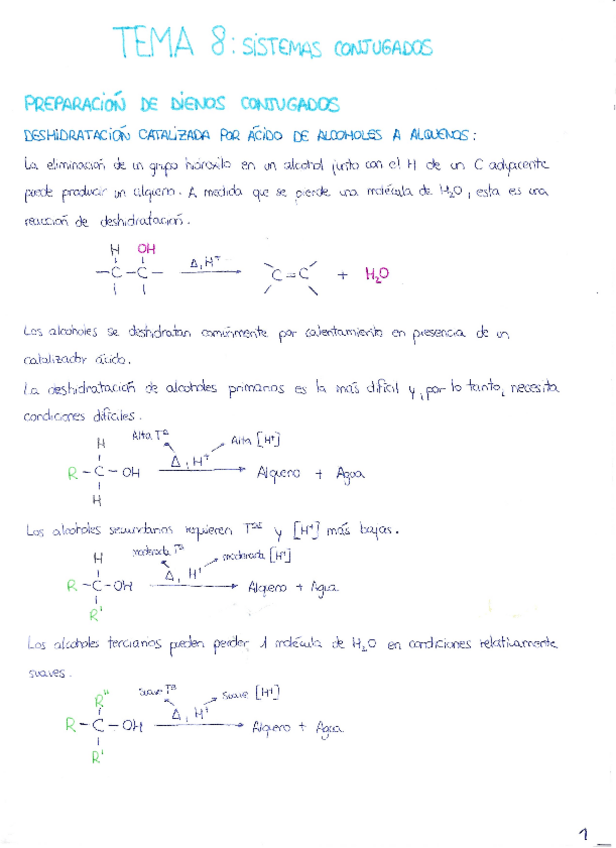 TEMA 8: SISTEMAS CONJUGADOS
PREPARACIÓN DE DIENOS CONJUGADOS
DESHIDRATACIÓN CATALIZADA POR ÁCIDO DE ALCOHOLES A ALQUENOS:
La eliminación de un grupo hidroxilo en un alcohol junto con el H de un C adyacente
puede producir un alqueno. A medida que se pierde una molécula de H₂O, esta es una
reacción de deshidratación.
H OH
–C–C– Δ, H⁺ C=C + H₂O
Los alcoholes se deshidratan comúnmente por calentamiento en presencia de un
catalizador ácido.
La deshidratación de alcoholes primarios es la más difícil y, por lo tanto, necesita
condiciones difíciles.
H Alta Tª Alta [H⁺]
R–C–OH Δ, H⁺ Alqueno + Agua
H
Los alcoholes secundarios requieren Tªs y [H⁺] más bajas.
H moderada Tª moderada [H⁺]
R–C–OH Δ, H⁺ Alqueno + Agua
R'
Los alcoholes terciarios pueden perder 1 molécula de H₂O en condiciones relativamente
suaves.
R'' suave Tª Suave [H⁺]
R–C–OH Δ, H⁺ Alqueno + Agua
R'
1